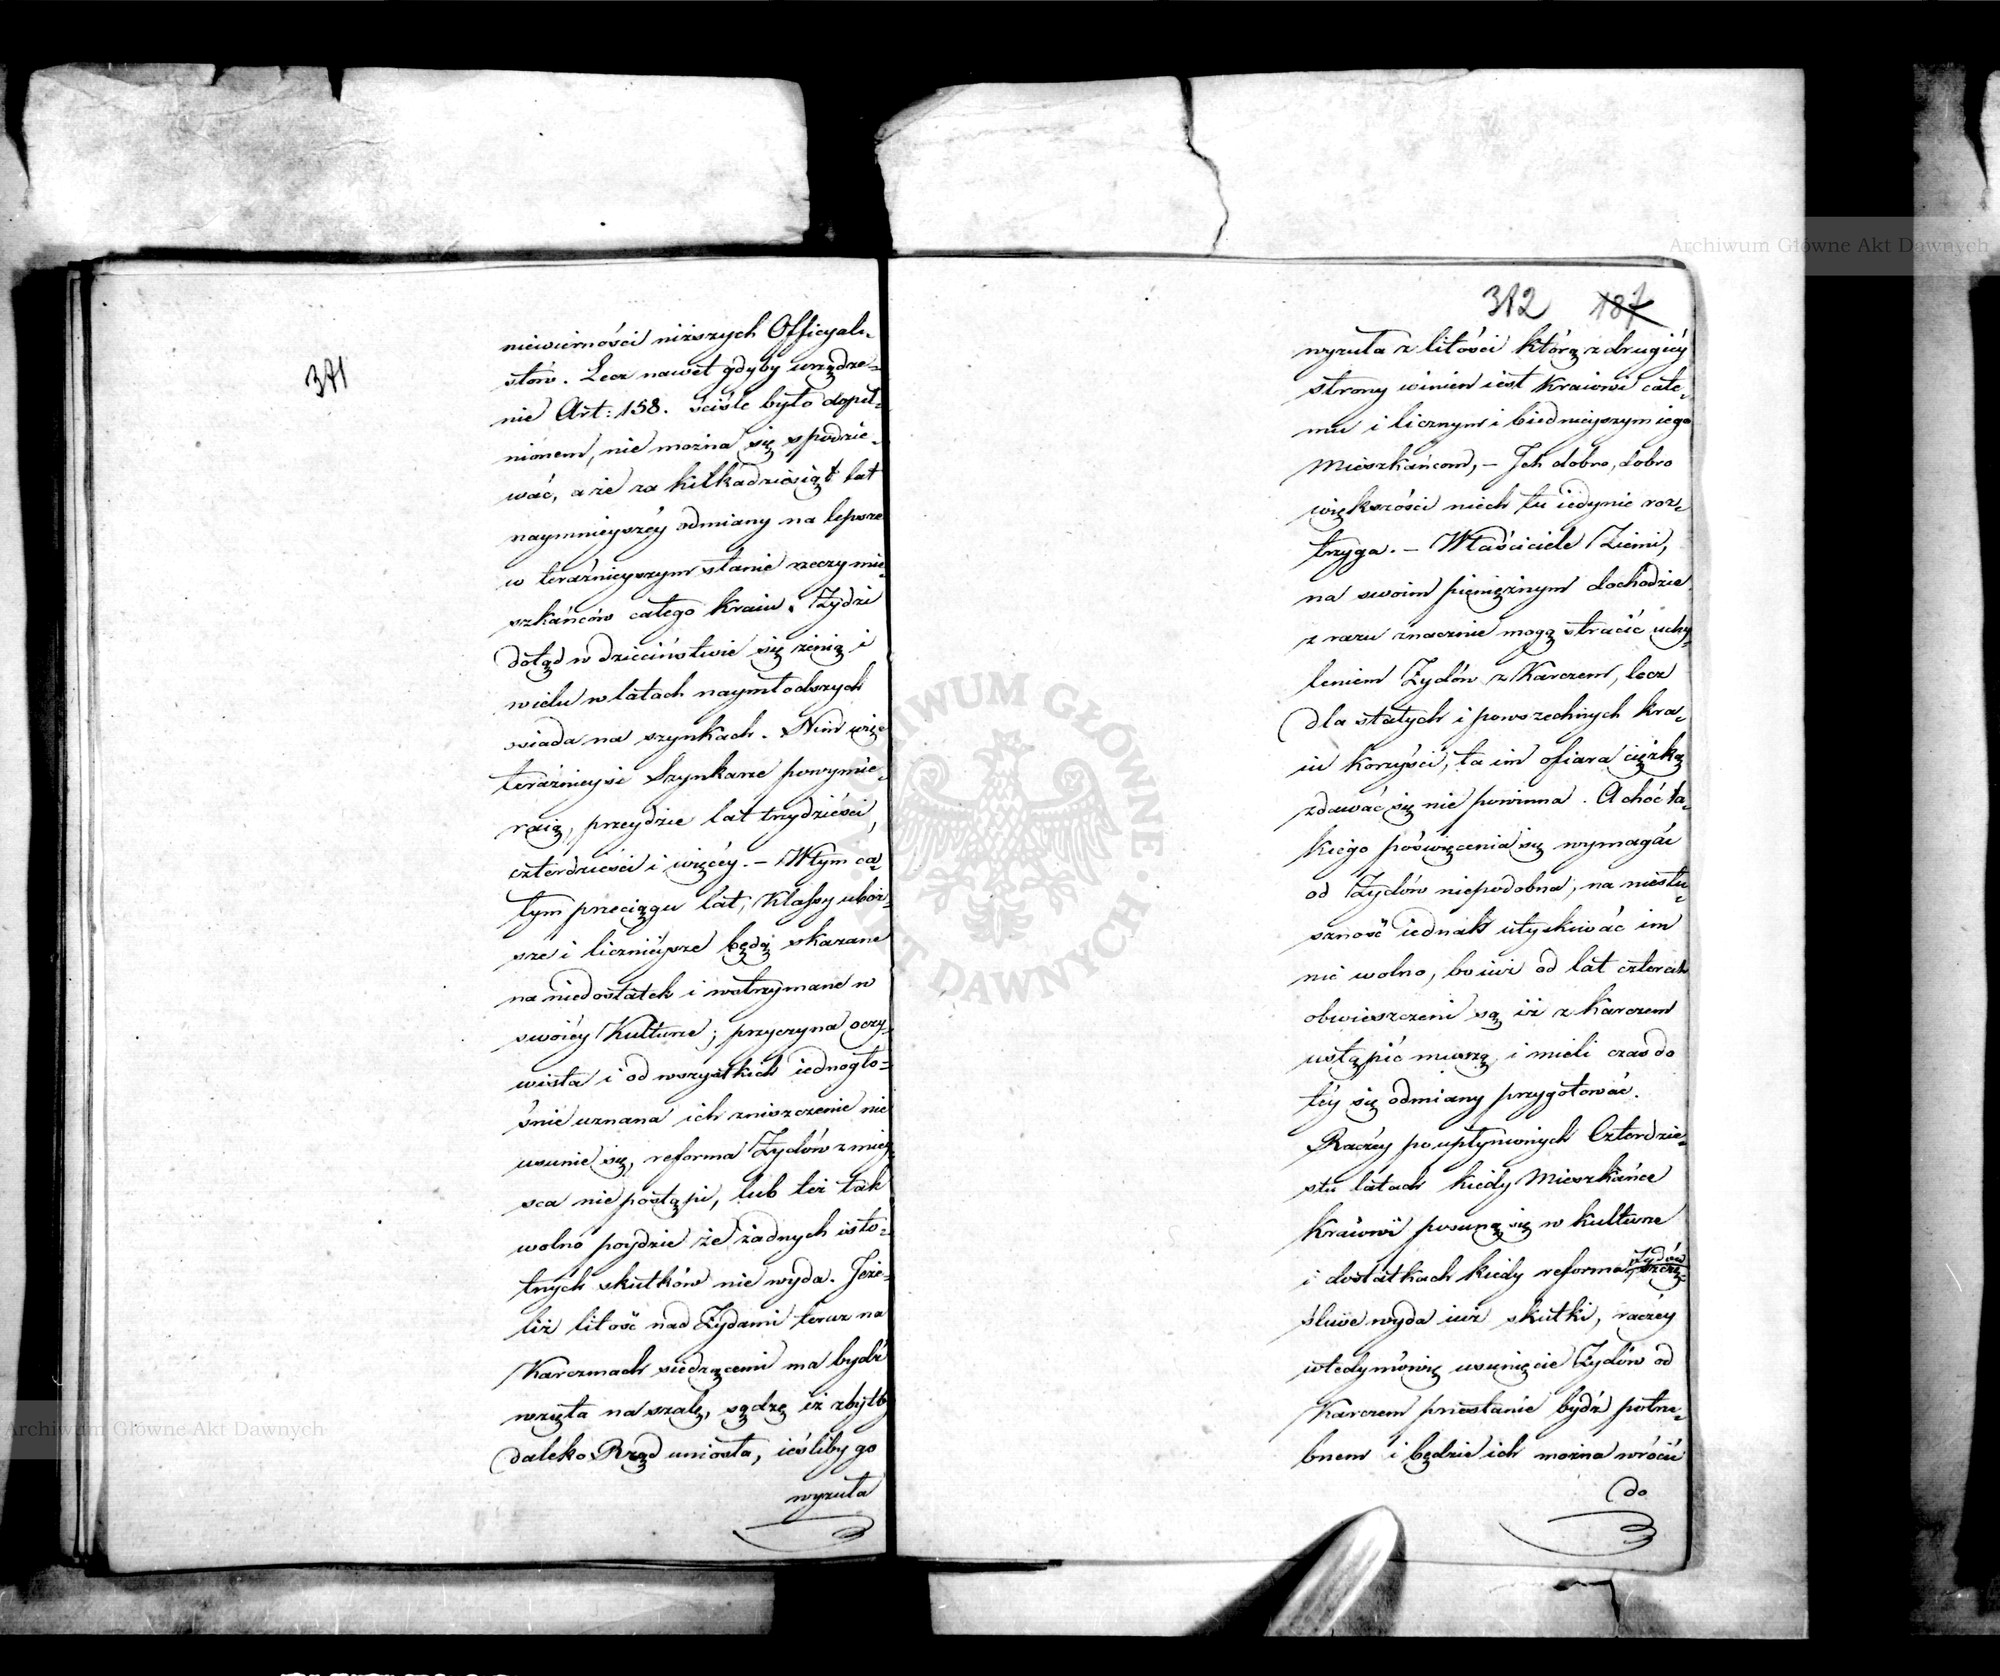 371
niewierności niższych Officyali-
stów. Lecz nawet gdyby urządze-
nie Art: 158. ściśle było dopeł-
nionem, nie można się spodzie-
wać, aże za kilkadziesiąt lat
naymnieyszéy odmiany na lepsze
w teraźnieyszym stanie rzeczy mie-
szkańców całego kraiu. Żydzi
dotąd w dzieciństwie się żenią i
wielu w latach naymłodszych
osiada na szynkach. Nim więc
teraźnieysi Szynkarze powymie-
raią, przeydzie lat trzydzieści,
czterdzieści i więcéy. – W tym ca-
łym przeciągu lat, Klassy uboż-
sze i licznieysze będą skazane
na niedostatek i wstrzymane w
swoiéy Kulturze; przyczyna oczy-
wista i od wszystkich iednogło-
śnie uznana ich zniszczenie nie
usunie się, reforma Żydów z miey-
sca nie postąpi, lub też tak
wolno poydzie że żadnych isto-
tnych skutków nie wyda. Jeże-
liż litość nad Żydami teraz na
Karczmach siedzącemi ma bydź
wzięta na szalę, sądzę iż zbyt by
daleko Rząd uniosła, ieśliby go
wyzuła
312 187
wyzuła z litości którą z drugiéy
strony winien iest Kraiowi całe-
mu i licznym i biednieyszym iego
Mieszkańcom, – Ich dobro, dobro
większości niech tu iedynie roz-
trzyga. – Właściciele Ziemi,
na swoim pieniężnym dochodzie
z razu znacznie mogą stracić uchy-
leniem Żydów z Karczem, lecz
dla stałych i powszechnych kra-
iu korzyści, ta im ofiara ciężką
zdawać się nie powinna. A choć ta-
kiego poświęcenia się wymagać
od Żydów niepodobna; na niesłu-
szność iednak utyskiwać im
nie wolno, bo iuż od lat czterech
obwieszczeni są iż z Karczem
ustąpić muszą, i mieli czas do
téy się odmiany przygotować.
Raczéy po upłynionych Czterdzie-
stu latach kiedy Mieszkańce
Kraiowi posuną się w kulturze
i dostatkach kiedy reforma Żydów szczę-
śliwe wyda iuż skutki, raczéy
wtedy mówię usunięcie Żydów od
Karczem przestanie bydź potrze-
bnem i będzie ich można wrócić
do
ARCHIWUM GŁÓWNE AKT DAWNYCH
Archiwum Główne Akt Dawnych
Archiwum Główne Akt Dawnych